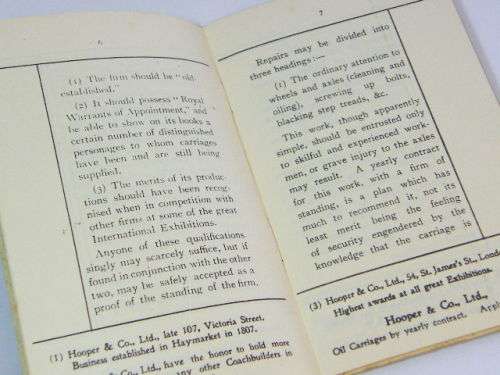 6
(1) The firm should be "old-
established."
(2) It should possess "Royal
Warrants of Appointment," and
be able to show on its books a
certain number of distinguished
personages to whom carriages
have been and are still being
supplied.
(3) The merits of its produc-
tions should have been recog-
nised when in competition with
other firms at some of the great
International Exhibitions.
Anyone of these qualifications
singly may scarcely suffice, but if
found in conjunction with the other
two, may be safely accepted as a
proof of the standing of the firm.
(1) Hooper & Co., Ltd., late 107, Victoria Street.
Business established in Haymarket in 1807.
& Co., Ltd., have the honor to hold more
any other Coachbuilders in
7
Repairs may be divided into
three headings:—
(1) The ordinary attention to
wheels and axles (cleaning and
oiling), screwing up bolts,
blacking step treads, &c.
This work, though apparently
simple, should be entrusted only
to skilful and experienced work-
men, or grave injury to the axles
may result. A yearly contract
for this work, with a firm of
standing, is a plan which has
much to recommend it, not its
least merit being the feeling
of security engendered by the
knowledge that the carriage is
(3) Hooper & Co., Ltd., 54, St. James's St., Lond
Highest awards at all great Exhibitions.
Hooper & Co., Ltd.,
Oil Carriages by yearly contract.